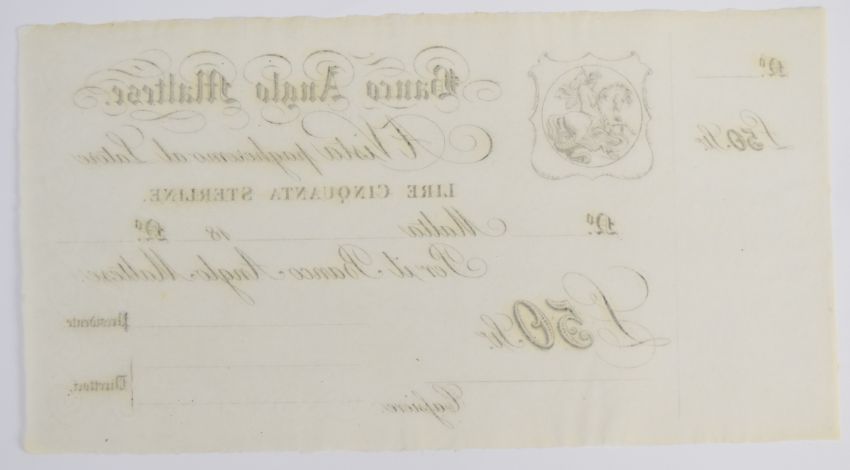 Nº.
£50. St:
Banco Anglo Maltese.
A Vista pagheremo al Latore
LIRE CINQUANTA STERLINE.
Nº. Malta 18 Nº.
Per il Banco Anglo-Maltese.
£50. St:
Presidente
Direttori.
Cassiere.